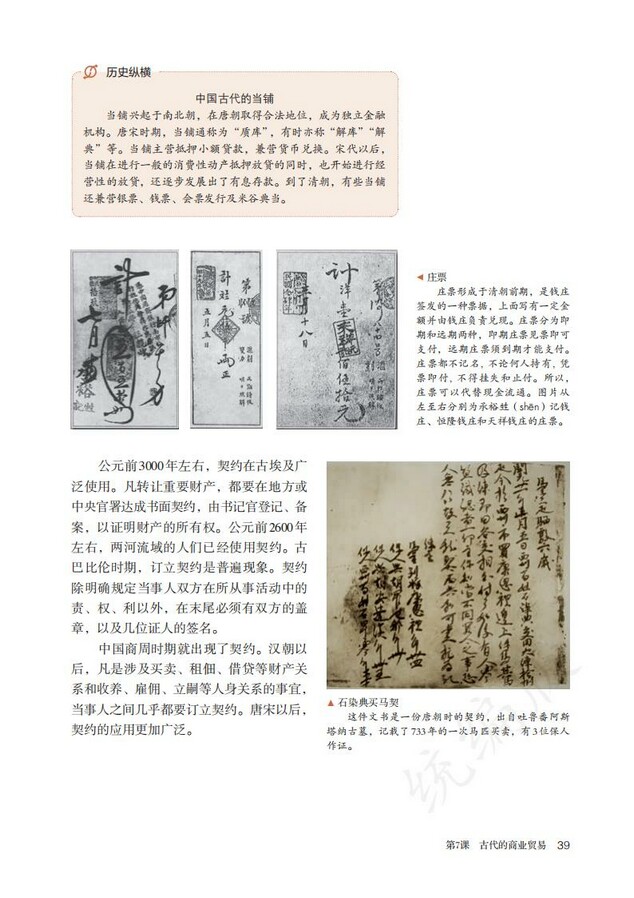 历史纵横
中国古代的当铺
当铺兴起于南北朝，在唐朝取得合法地位，成为独立金融
机构。唐宋时期，当铺通称为“质库”，有时亦称“解库”“解
典”等。当铺主营抵押小额贷款，兼营货币兑换。宋代以后，
当铺在进行一般的消费性动产抵押放贷的同时，也开始进行经
营性的放贷，还逐步发展出了有息存款。到了清朝，有些当铺
还兼营银票、钱票、会票发行及米谷典当。
庄票
庄票形成于清朝前期，是钱庄
签发的一种票据，上面写有一定金
额并由钱庄负责兑现。庄票分为即
期和远期两种，即期庄票见票即可
支付，远期庄票须到期才能支付。
庄票都不记名，不论何人持有，凭
票即付，不得挂失和止付。所以，
庄票可以代替现金流通。图片从
左至右分别为承裕甡（shēn）记钱
庄、恒隆钱庄和天祥钱庄的庄票。
公元前3000年左右，契约在古埃及广
泛使用。凡转让重要财产，都要在地方或
中央官署达成书面契约，由书记官登记、备
案，以证明财产的所有权。公元前2600年
左右，两河流域的人们已经使用契约。古
巴比伦时期，订立契约是普遍现象。契约
除明确规定当事人双方在所从事活动中的
责、权、利以外，在末尾必须有双方的盖
章，以及几位证人的签名。
中国商周时期就出现了契约。汉朝以
后，凡是涉及买卖、租佃、借贷等财产关
系和收养、雇佣、立嗣等人身关系的事宜，
当事人之间几乎都要订立契约。唐宋以后，
契约的应用更加广泛。
石染典买马契
这件文书是一份唐朝时的契约，出自吐鲁番阿斯
塔纳古墓，记载了733年的一次马匹买卖，有3位保人
作证。
第7课 古代的商业贸易 39